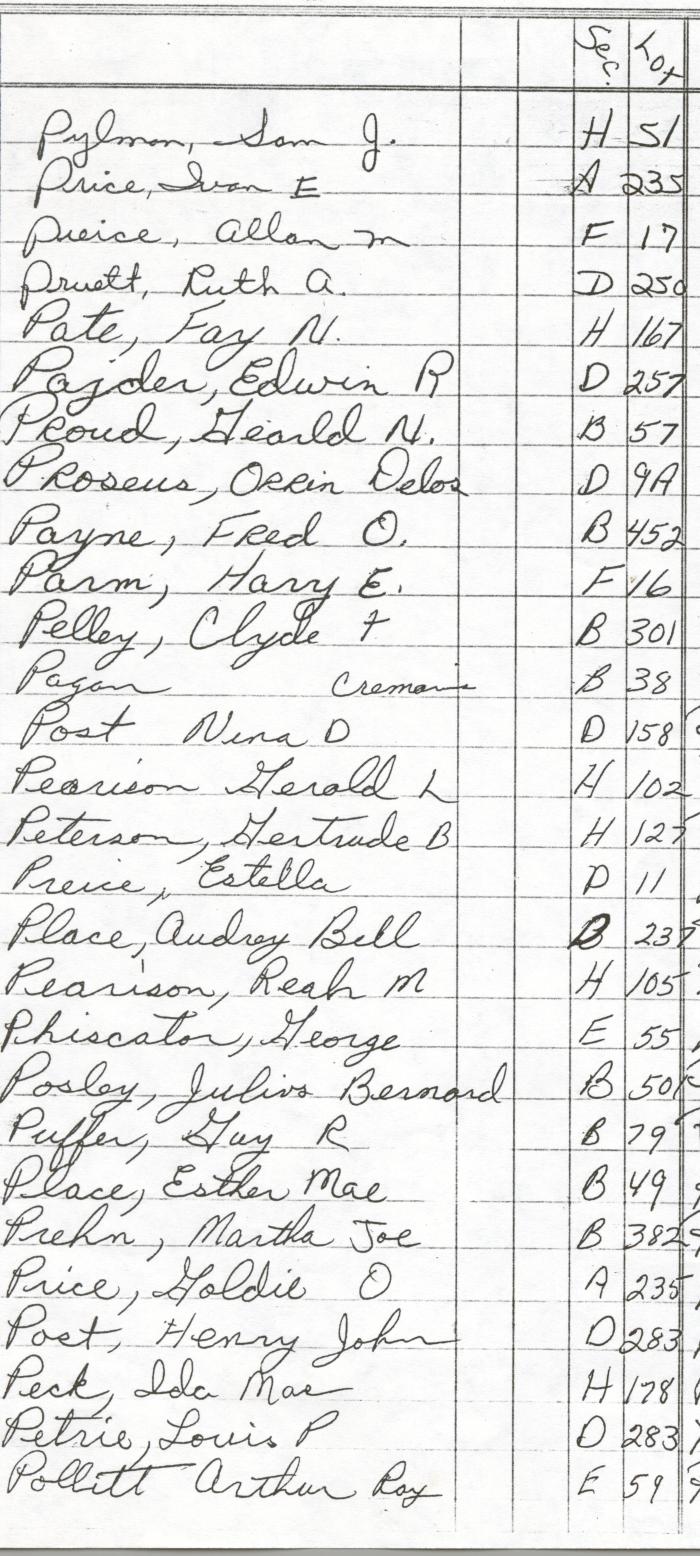 Sec. Lot
Pylman, Sam J. H 51
Price, Ivan E A 235
Preice, Allan M F 17
Pruett, Ruth A. D 250
Pate, Fay N. H 167
Pajder, Edwin R D 257
Proud, Gearld N. B 57
Proseus, Orrin Delos D 9A
Payne, Fred O. B 452
Parm, Harry E. F 16
Pelley, Clyde F B 301
Pagan B 38
Post Nina D D 158
Pearison Gerald L H 102
Peterson, Gertrude B H 127
Preice, Estella D 11
Place, Audrey Bell B 237
Pearison, Reah M H 105
Phiscator, George E 55
Posley, Julius Bernard B 501
Puffer, Guy R B 79
Place, Esther Mae B 49
Prehn, Martha Joe B 382
Price, Goldie O A 235
Post, Henry John D 283
Peck, Ida Mae H 178
Petrie, Louis P D 283
Pollitt Arthur Ray E 59